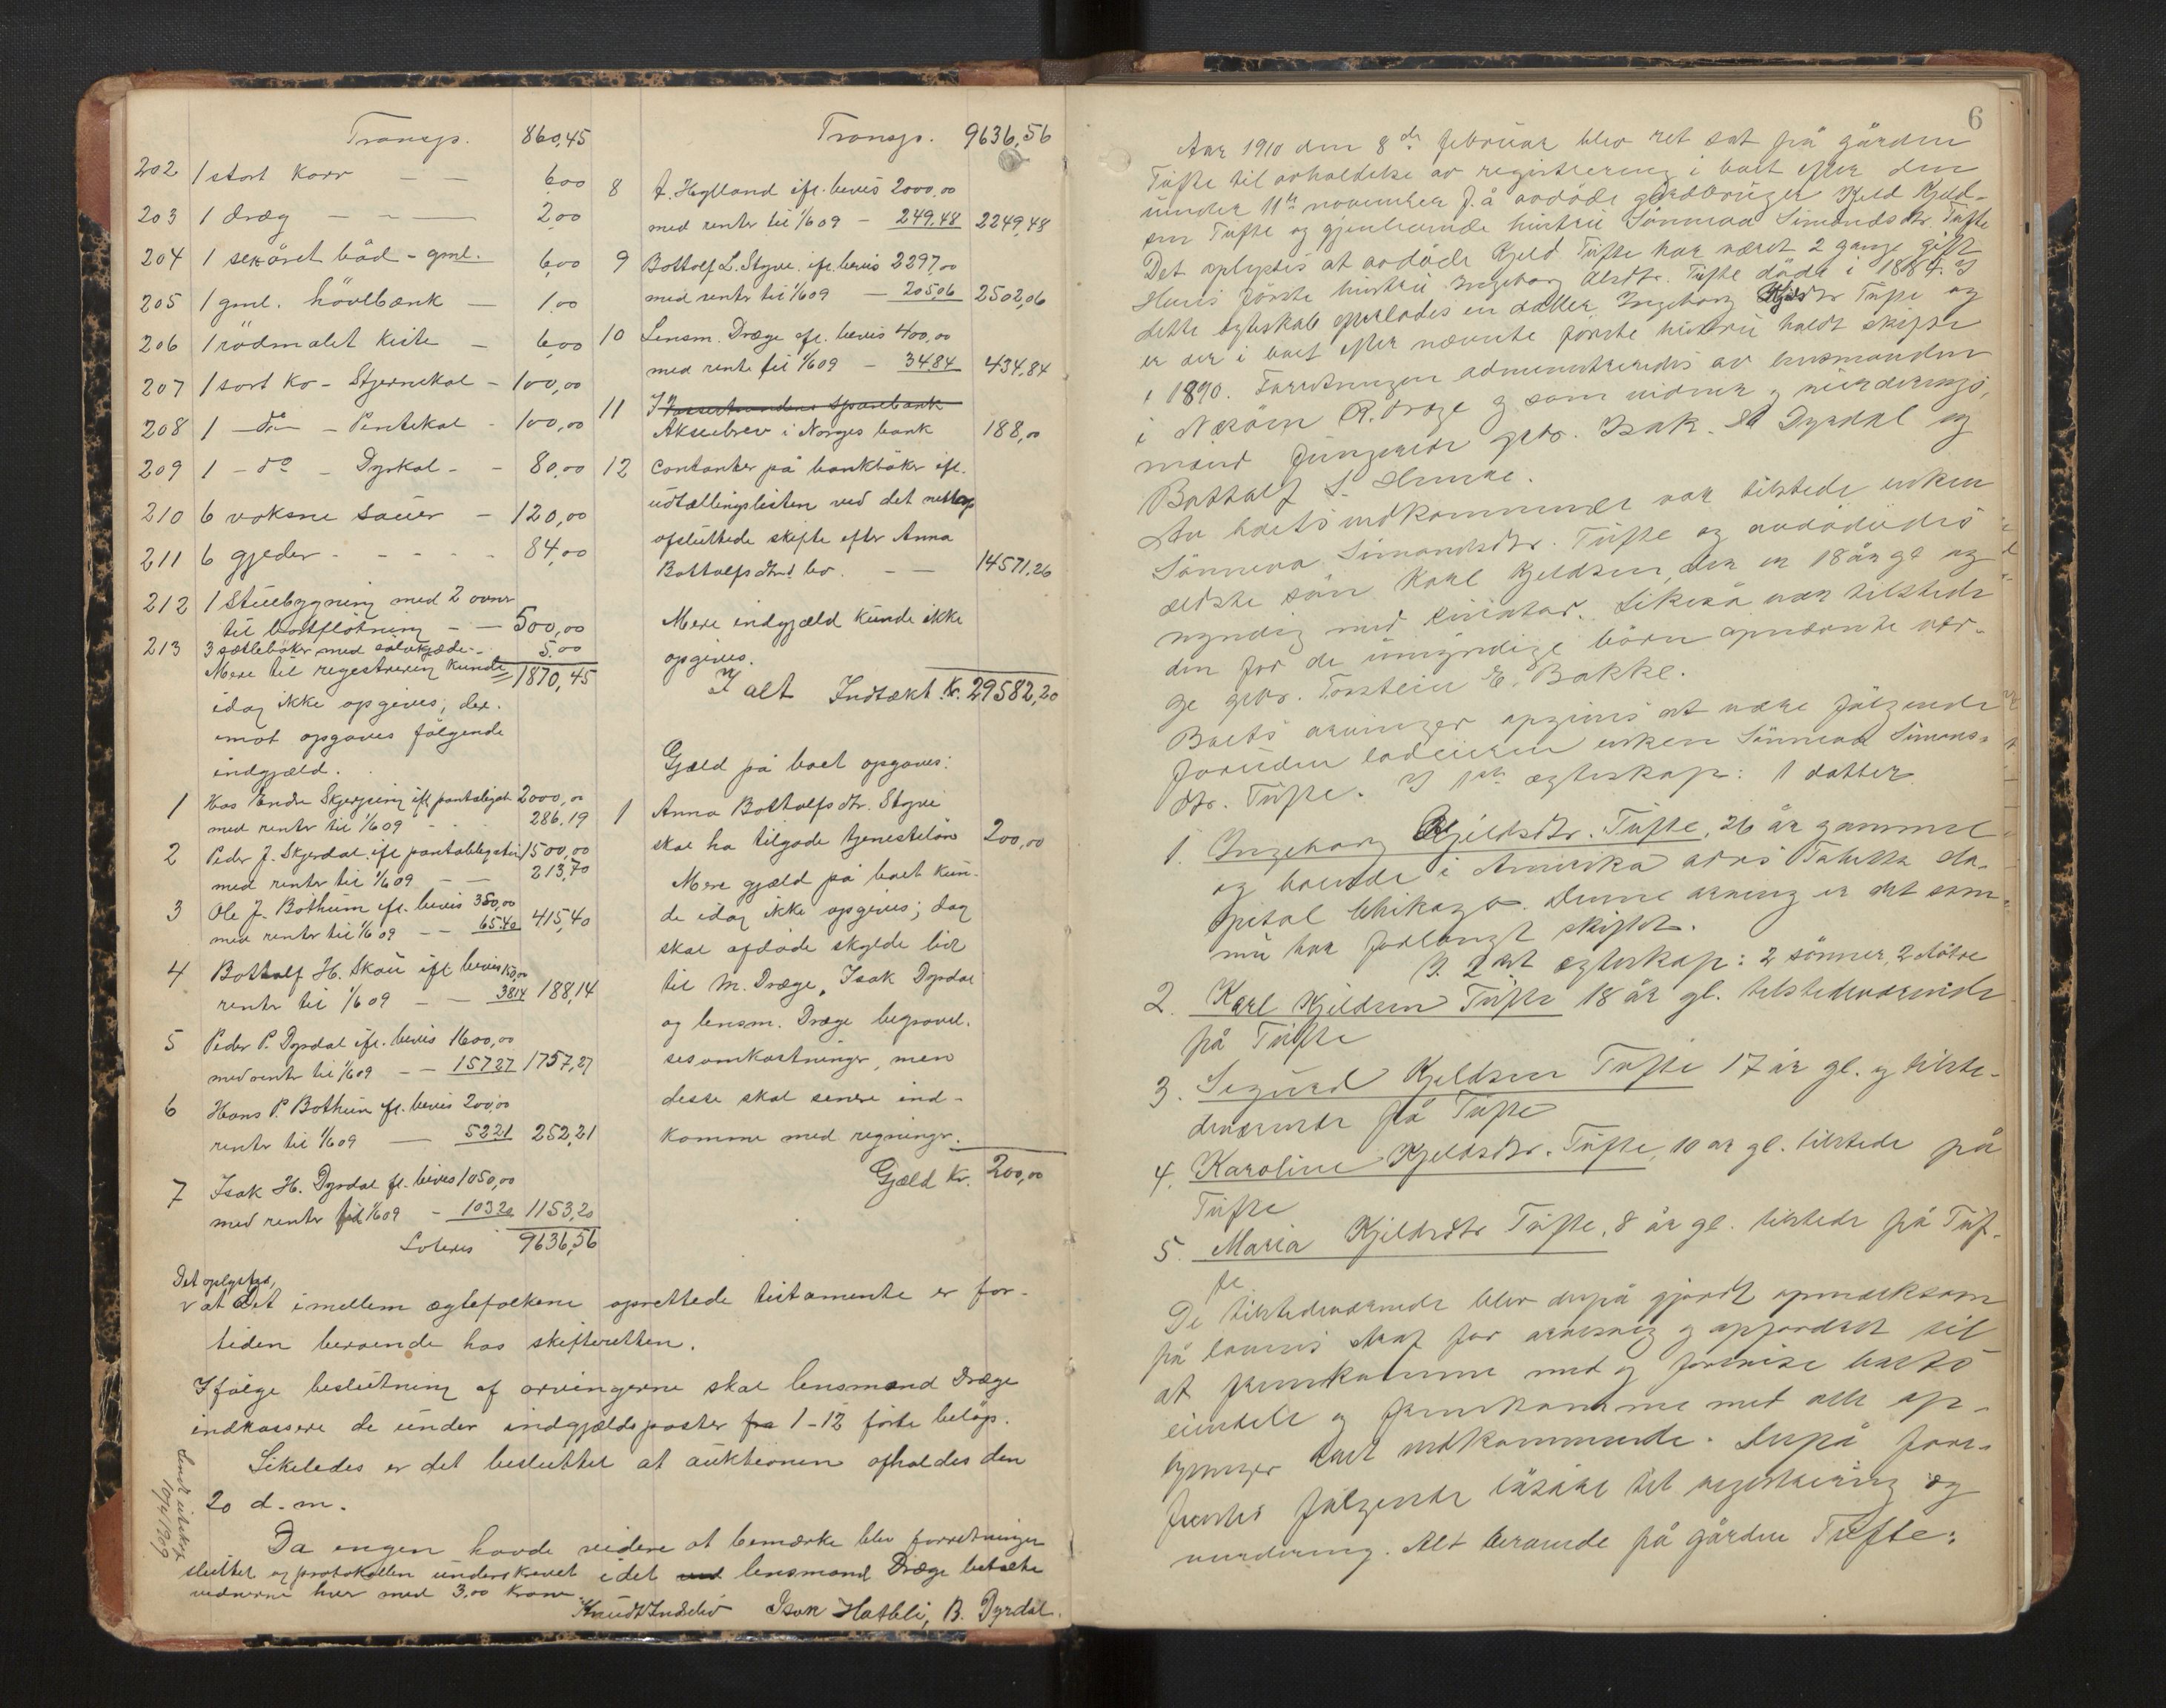 Transp. 860,45
202 1 stort Karr — — 6,00
203 1 dræg — — — 2,00
204 1 sexåret båd - gml. 6,00
205 1 gml. hövlbænk — 1,00
206 1 rödmalet kiste — 6,00
207 1 sort ko - Stjernekol - 100,00
208 1 - do - Pentekol - 100,00
209 1 - do - Dyrkol - - 80,00
210 6 voksne sauer - 120,00
211 6 gjeder - - - - - 84,00
212 1 Stuebygning med 2 ovner
til bortflötning - — 500,00
213 3 sættebøker med sølvkjæde - 5,00
Mere til regestrering kunde 1870,45
idag ikke opgives; der-
imot opgaves fölgende
indgjæld.
1 Hos Endre Skjerping ifl. pantobligat. 2000,00
med renter til 1/6 09 - - 286,19
2 Peder J. Skjerdal ifl. pantobligation 1500,00
med renter til 1/6 09 — — 213,70
3 Ole J. Bothun ifl. bevis 350,00
med renter til 1/6 09 — — 65,40 415,40
4 Bottolf H. Skau ifl. bevis 150,00
renter til 1/6 09 — — 38,14 188,14
5 Peder P. Dyrdal ifl. bevis 1600,00
med renter til 1/6 09 — — 157,27 1757,27
6 Hans P. Bothun ifl. bevis 200,00
renter til 1/6 09 — 52,21 252,21
7 Isak H. Dyrdal ifl. bevis 1050,00
med renter til 1/6 09 - 103,20 1153,20
Lateris 9636,56
Transp. 9636,56
8 A. Hylland ifl. bevis 2000,00
med renter til 1/6 09 - 249,48 2249,48
9 Bottolf L. Styve ifl. bevis 2297,00
med renter til 1/6 09 — 205,06 2502,06
10 Lensm. Dræge ifl. bevis 400,00
med rente til 1/6 09 - 34,84 434,84
11 I Vassertrandens Sparebank
Aksiebrev i Norges bank 188,00
12 Contanter på bankbøker ifl.
udtællingslisten ved det netop
afsluttede skifte efter Anna
Bottolfsdtrs. bo. - — 14571,26
Mere indgjæld kunde ikke
opgives.
I alt Indtækt Kr. 29582,20
Gjæld på boet opgaves:
1 Anna Bottolfsdtr. Styve
skal ha tilgode tjenestelön 200,00
Mere gjæld på boet kun-
de idag ikke opgives; dog
skal afdøde skylde lidt
til M. Dræge, Isak Dyrdal
og lensm. Dræge begravel-
sesomkostninger, men
desse skal senere ind-
komme med regninger.
Gjæld Kr. 200,00
Det oplystes,
at Det imellem ægtefolkene oprettede testamente er for-
tiden beroende hos skifteretten.
Ifölge beslutning af arvingerne skal lensmand Dræge
indkassere de under indgjældsposter fra 1-12 förte belöp.
Likeledes er det besluttet at auktionen afholdes den
20 d. m.
Da ingen havde videre at bemærke blev forretningen
sluttet og protokollen underskrevet idet ved lensmand Dræge betalte
vidnerne hver med 3,00 kroner.
Isak Hatleli, B. Dyrdal.
Sendt utskrift
10/4 1909
6
Aar 1910 den 8de februar blev ret sat på gården
Tufte til avholdelse av registrering i boet efter den
under 11te november f. å. avdöde gårdbruger Kjeld Kjeld-
sen Tufte og gjenlevende hustru Sönneva Simonsdtr. Tufte
Det oplystes at avdöde Kjeld Tufte har været 2 gange gift
Hans förste hustru Ingeborg Olsdtr. Tufte döde i 1884. I
dette egteskab efterlodes en datter, Ingeborg Kjeldsdtr Tufte og
er der i boet efter nævnte förste hustru holdt skifte
i 1890. Forretningen administreredes av lensmanden
i Næröen R. Dræge og som vidner og vurderings-
mænd fungerte gdbr. Isak Dyrdal og
Bottolf S. Hemre.
Av boets vedkommende var tilstede enken
Sönneva Simonsdtr. Tufte og avdödedes
ældste sön Karl Kjeldsen, der er 18 år gl og
myndig med kurator. Likeså var tilstede
den for de umyndige børn opnævnte vær-
ge gdbr. Torstein E. Bakke.
Boets arvinger opgives at være fölgende
foruden lodeieren enken Sönneva Simons-
dtr. Tufte. I 1ste egteskap: 1 datter
1. Ingeborg Kjeldsdtr. Tufte, 26 år gammel
og boende i Amerika adrs Tabitha Ho-
spital Chikago. Denne arving er det som
nu har forlangt skiftet.
I 2det egteskap: 2 sönner, 2 døtre
2. Karl Kjeldsen Tufte 18 år gl. tilstedeværende
på Tufte
3. Sigurd Kjeldsen Tufte 17 år gl. og tilste-
deværende på Tufte
4. Karoline Kjeldsdtr. Tufte, 10 år gl. tilstede på
Tufte
5. Maria Kjeldsdtr Tufte, 8 år gl. tilstede på Tuf-
te
De tilstedeværende blev derpå gjordt opmerksom
på lovens straf for og opfordret til
at fremkomme med og forevise boets
eiendele og fremkomme med alle op-
lysninger boet vedkommende. Derpå fore-
fundtes fölgende lösöre til registrering og
vurdering. Alt beroende på gården Tufte: